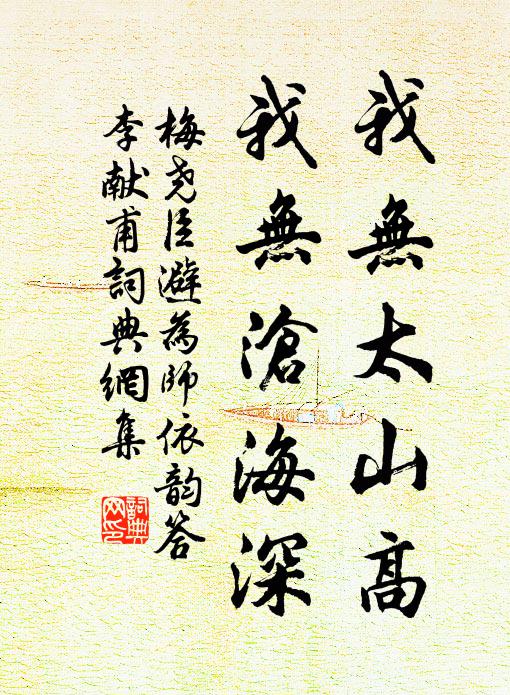 我無太山高
我無滄海深
梅堯臣避為師依韵答
李献甫詞典網集
詞典
网印